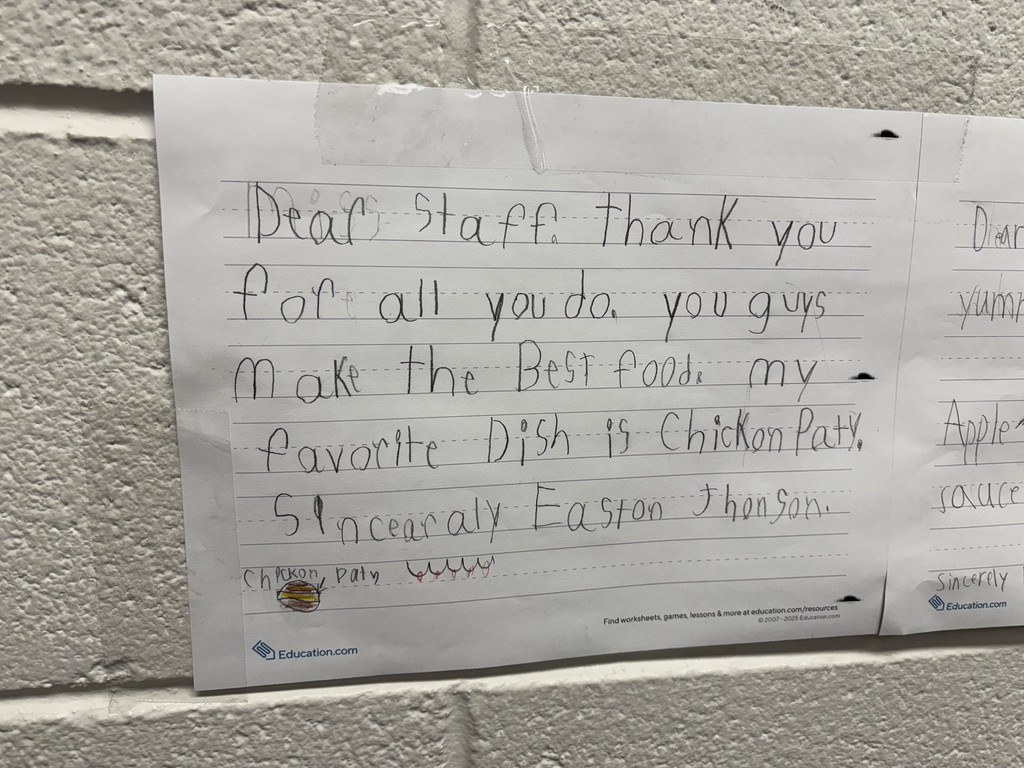 Dear Staff. Thank you
for all you do. you guys
make the Best food. my
favorite Dish is Chickon Paty.
Sincearaly Easton Jhonson.
Chickon Paty
Find worksheets, games, lessons & more at education.com/resources
© 2007 - 2025 Education.com
Education.com
Dear
yum
Apple
sauce
Sincerely
Education.com